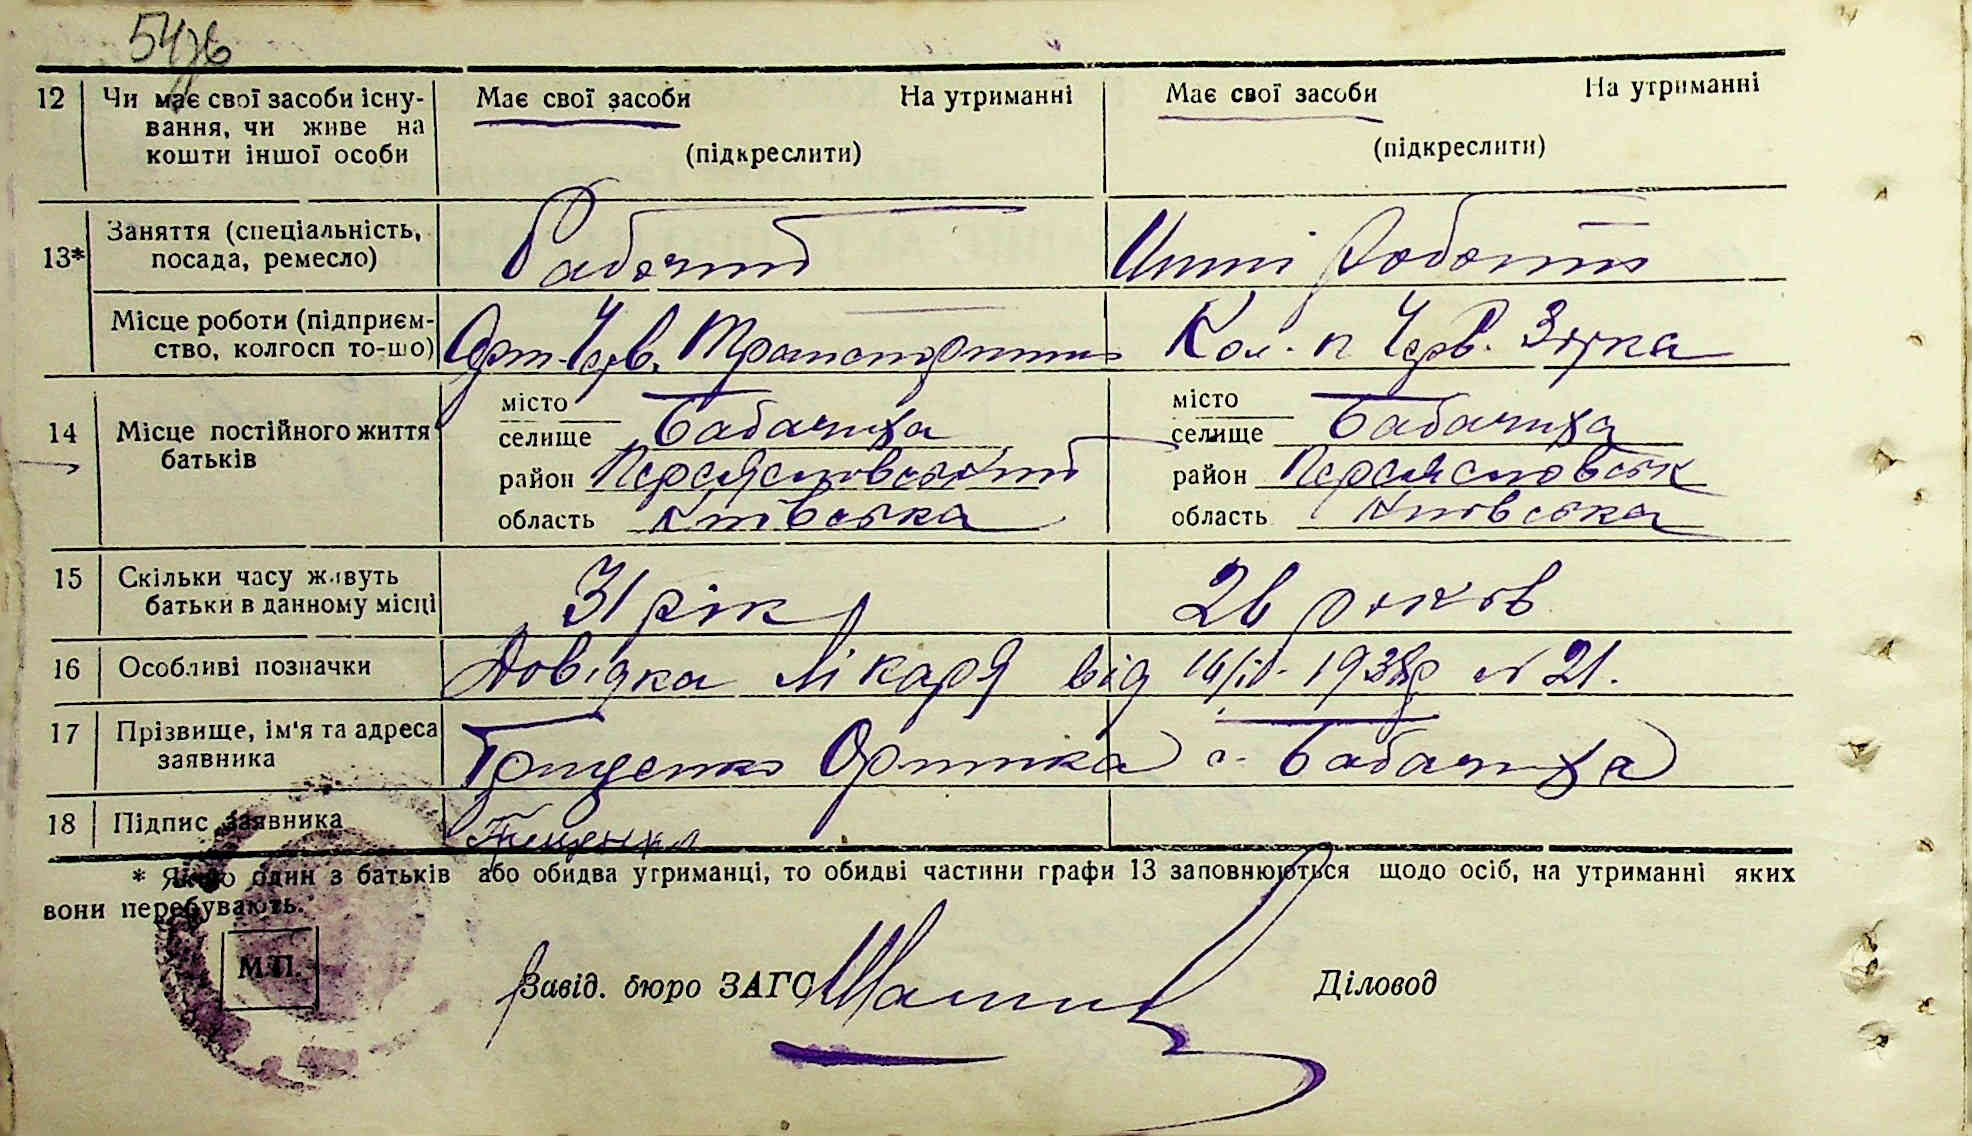 12 Чи має свої засоби існу-
вання, чи живе на
кошти іншої особи
Має свої засоби На утриманні
(підкреслити)
Має свої засоби На утриманні
(підкреслити)
13* Заняття (спеціальність,
посада, ремесло)
Рабочий
Инші роботи
Місце роботи (підприєм-
ство, колгосп то-що)
Арт. Черв. Транспортник
Кол. п Черв. Зірка
14 Місце постійного життя
батьків
місто
селище Бабачиха
район Переяславський
область Київська
місто
селище Бабачиха
район Переяславськ
область Київська
15 Скільки часу живуть
батьки в данному місці
31 рік
26 років
16 Особливі позначки
Довідка лікаря від 1938р N 21.
17 Прізвище, ім'я та адреса
заявника
Грищенко с. Бабачиха
18 Підпис заявника
* Якщо один з батьків або обидва утриманці, то обидві частини графи 13 заповнюються щодо осіб, на утриманні яких
вони перебувають.
М.П.
Завід. бюро ЗАГС
Діловод